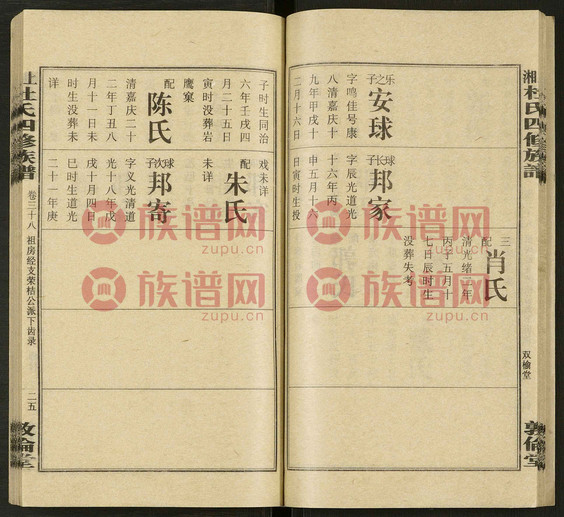 湘杜氏四修族譜
双榆堂
敦倫堂
乐之子
安球
字鸣佳号康
八清嘉庆十
九年甲戌十
二月十六日
球长子
邦家
字辰光道光
十六年丙
申五月十六
日寅时生授
三配
肖氏
清光绪二年
丙子五月十
七日辰时生
没葬失考
子时生同治
六年壬戌四
月二十五日
寅时没葬岩
鹰窠
配
陈氏
清嘉庆二十
二年丁丑八
月十一日未
时生没葬未
详
戏未详
配
朱氏
未详
球次子
邦寄
字义光清道
光十八年戊
戌十月四日
已时生道光
二十一年庚
上杜氏四修族譜
卷三十八 祖房经支荣桔公派下齿录
二五
敦倫堂
族谱网
zupu.cn
族谱网
zupu.cn
族谱网
zupu.cn
族谱网
zupu.cn